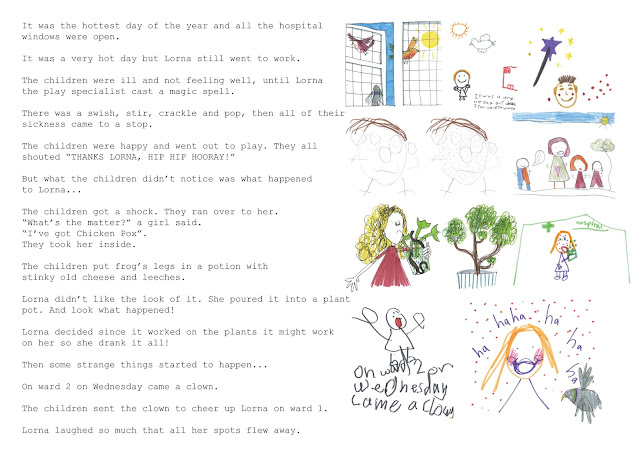 It was the hottest day of the year and all the hospital
windows were open.
It was a very hot day but Lorna still went to work.
The children were ill and not feeling well, until Lorna
the play specialist cast a magic spell.
There was a swish, stir, crackle and pop, then all of their
sickness came to a stop.
The children were happy and went out to play. They all
shouted “THANKS LORNA, HIP HIP HOORAY!”
But what the children didn’t notice was what happened
to Lorna...
The children got a shock. They ran over to her.
“What’s the matter?” a girl said.
“I’ve got Chicken Pox”.
They took her inside.
The children put frog’s legs in a potion with
stinky old cheese and leeches.
Lorna didn’t like the look of it. She poured it into a plant
pot. And look what happened!
Lorna decided since it worked on the plants it might work
on her so she drank it all!
Then some strange things started to happen...
On ward 2 on Wednesday came a clown.
The children sent the clown to cheer up Lorna on ward 1.
Lorna laughed so much that all her spots flew away.
It was a very
hospital
On ward 2 on
wednesday
came a clown
ha ha ha ha ha